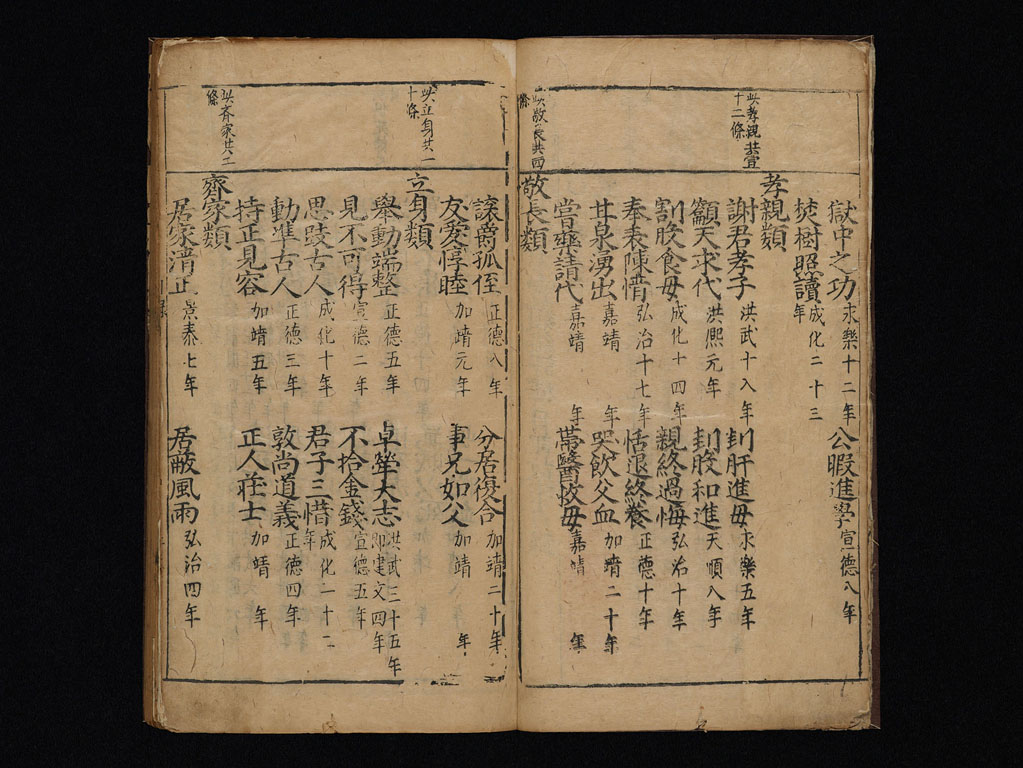 獄中之功 永樂十二年 公暇進學 宣德八年
焚樹照讀 成化二十三年
此孝親共壹十二條
孝親類
謝君孝子 洪武十八年 刲肝進母 永樂五年
籲天求代 洪熙元年 刲股和進 天順八年
割股食母 成化十四年 親終過悔 弘治十年
奉表陳情 弘治十七年 恬退終養 正德十年
甘泉湧出 嘉靖 年 哭飲父血 加靖二十年
嘗藥請代 嘉靖 年 帶醫救母 嘉靖 年
此敬長共四條
敬長類
讓爵孤侄 正德八年 分居復合 加靖二十年
友愛惇睦 加靖元年 事兄如父 加靖八年
此立身共一十條
立身類
舉動端整 正德五年 卓犖大志 洪武三十五年 即建文四年
見不可得 宣德二年 不拾金錢 宣德五年
思跂古人 成化十年 君子三惜 成化二十二年
動準古人 正德三年 敦尚道義 正德四年
持正見容 加靖五年 正人莊士 加靖 年
此齊家共二條
齊家類
居家清正 景泰七年 居蔽風雨 弘治四年